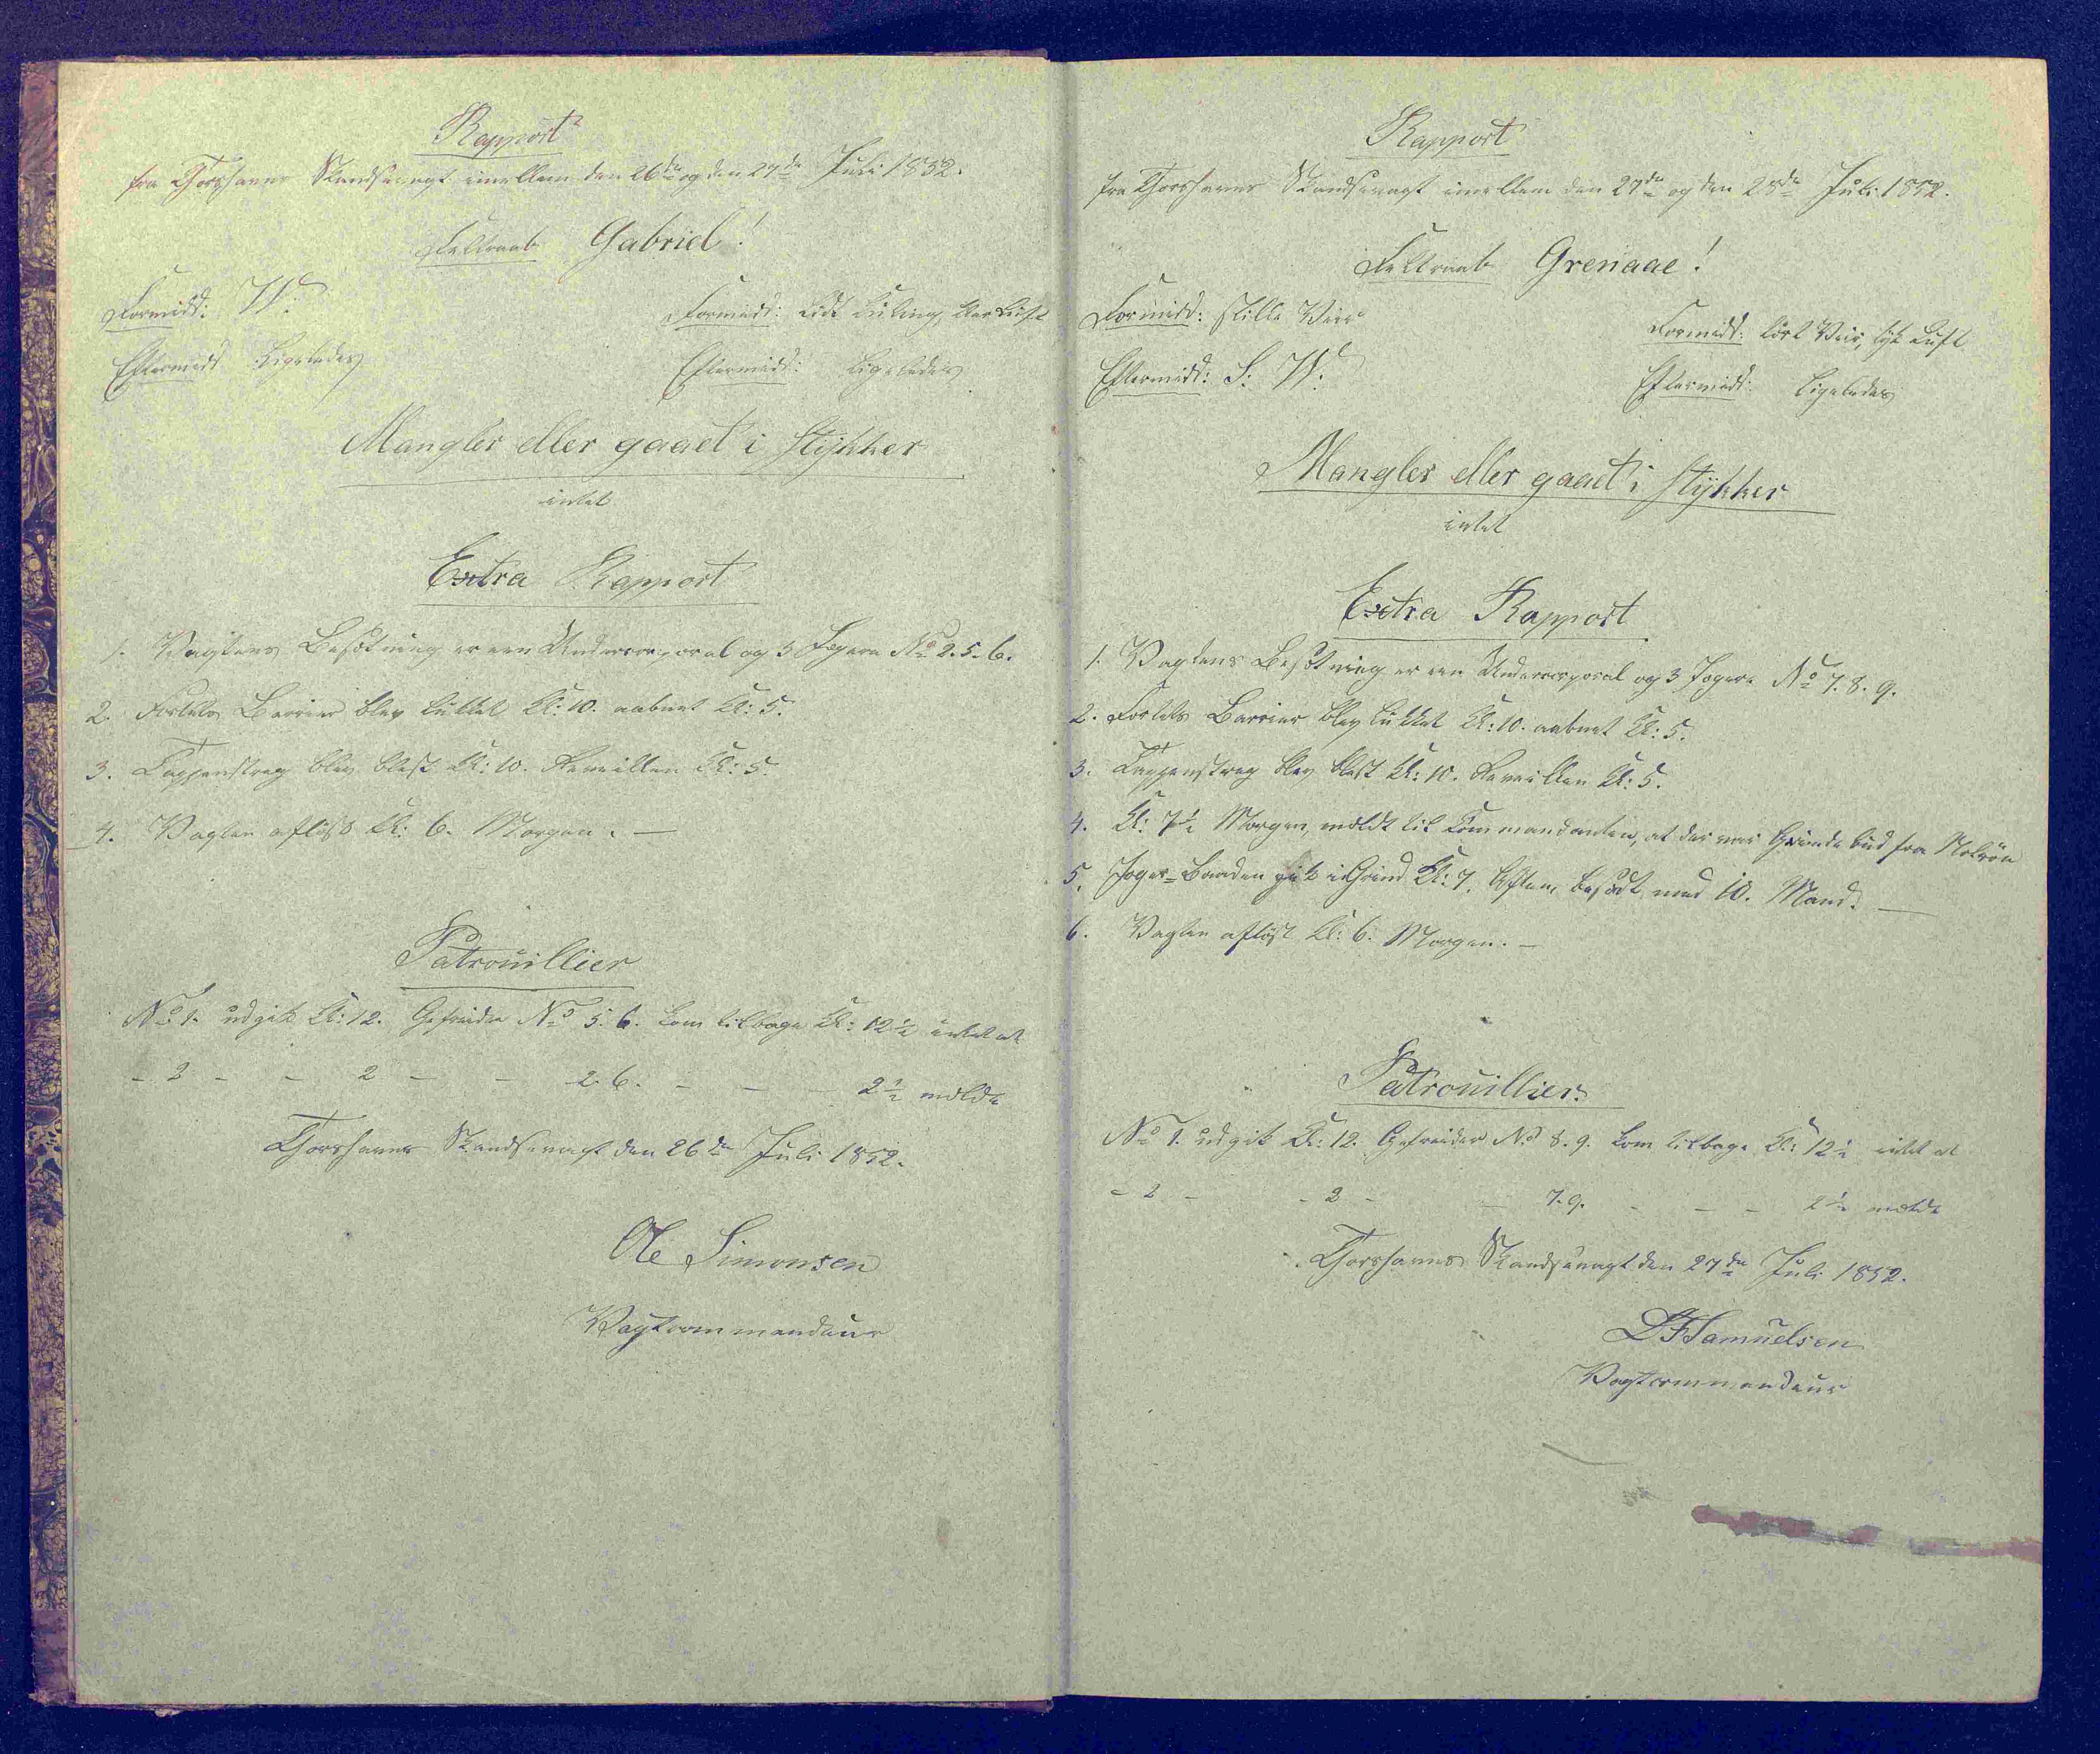 Rapport
fra Thorshavns Skandsevagt imellem den 26de og den 27de Juli 1852.
Feltraab Gabriel!
Formidd: W:
Formidd: lidt Kuling, klar Luft
Eftermidd Ligeledes
Eftermidd: ligeledes
Mangler eller gaaet i Stykker
intet
Extra Rapport
1. Vagtens Besætning er een Undercorporal og 3 Jægere No 2. 5. 6.
2. Fortets Barrier blev lukket Kl: 10. aabnet Kl: 5.
3. Tappenstreg blev blæst Kl: 10. Reveillen Kl: 5.
4. Vagten afløst Kl: 6. Morgen. —
Patrouillier
No 1. udgik Kl: 12. Gefreider No 5. 6. kom tilbage Kl: 12½ intet at
- 2 - - 2 - - 2. 6. - - - 2½ melde
Thorshavns Skandsevagt den 26de Juli 1852.
Ole Simonsen
Vagtcommandeur
Rapport
fra Thorshavns Skandsevagt imellem den 27de og den 28de Juli 1852.
Feltraab Grenaae!
Formidd: stille Veir
Formidd: tört Veir, tyk Luft
Eftermidd: S: W:
Eftermidd: ligeledes
Mangler eller gaaet i Stykker
intet
Extra Rapport
1. Vagtens Besætning er een Undercorporal og 3 Jægere No 7. 8. 9.
2. Fortets Barrier blev lukket Kl: 10. aabnet Kl: 5.
3. Tappenstreg blev blæst Kl: 10. Reveillen Kl: 5.
4. Kl: 7½ Morgen, meldt til Commandanten, at der var Grindebud fra Nolsøn
5. Jæger-Baaden gik i Grind Kl: 7. Aften, besadt med 10. Mand. —
6. Vagten afløst Kl: 6. Morgen. —
Patrouillier:
No 1. udgik Kl: 12. Gefreider No 8. 9. kom tilbage Kl: 12½ intet at
- 2 - - 2 - - 7. 9. - - - 2½ melde
Thorshavns Skandsevagt den 27de Juli 1852.
DFSamuelsen
Vagtcommandeur